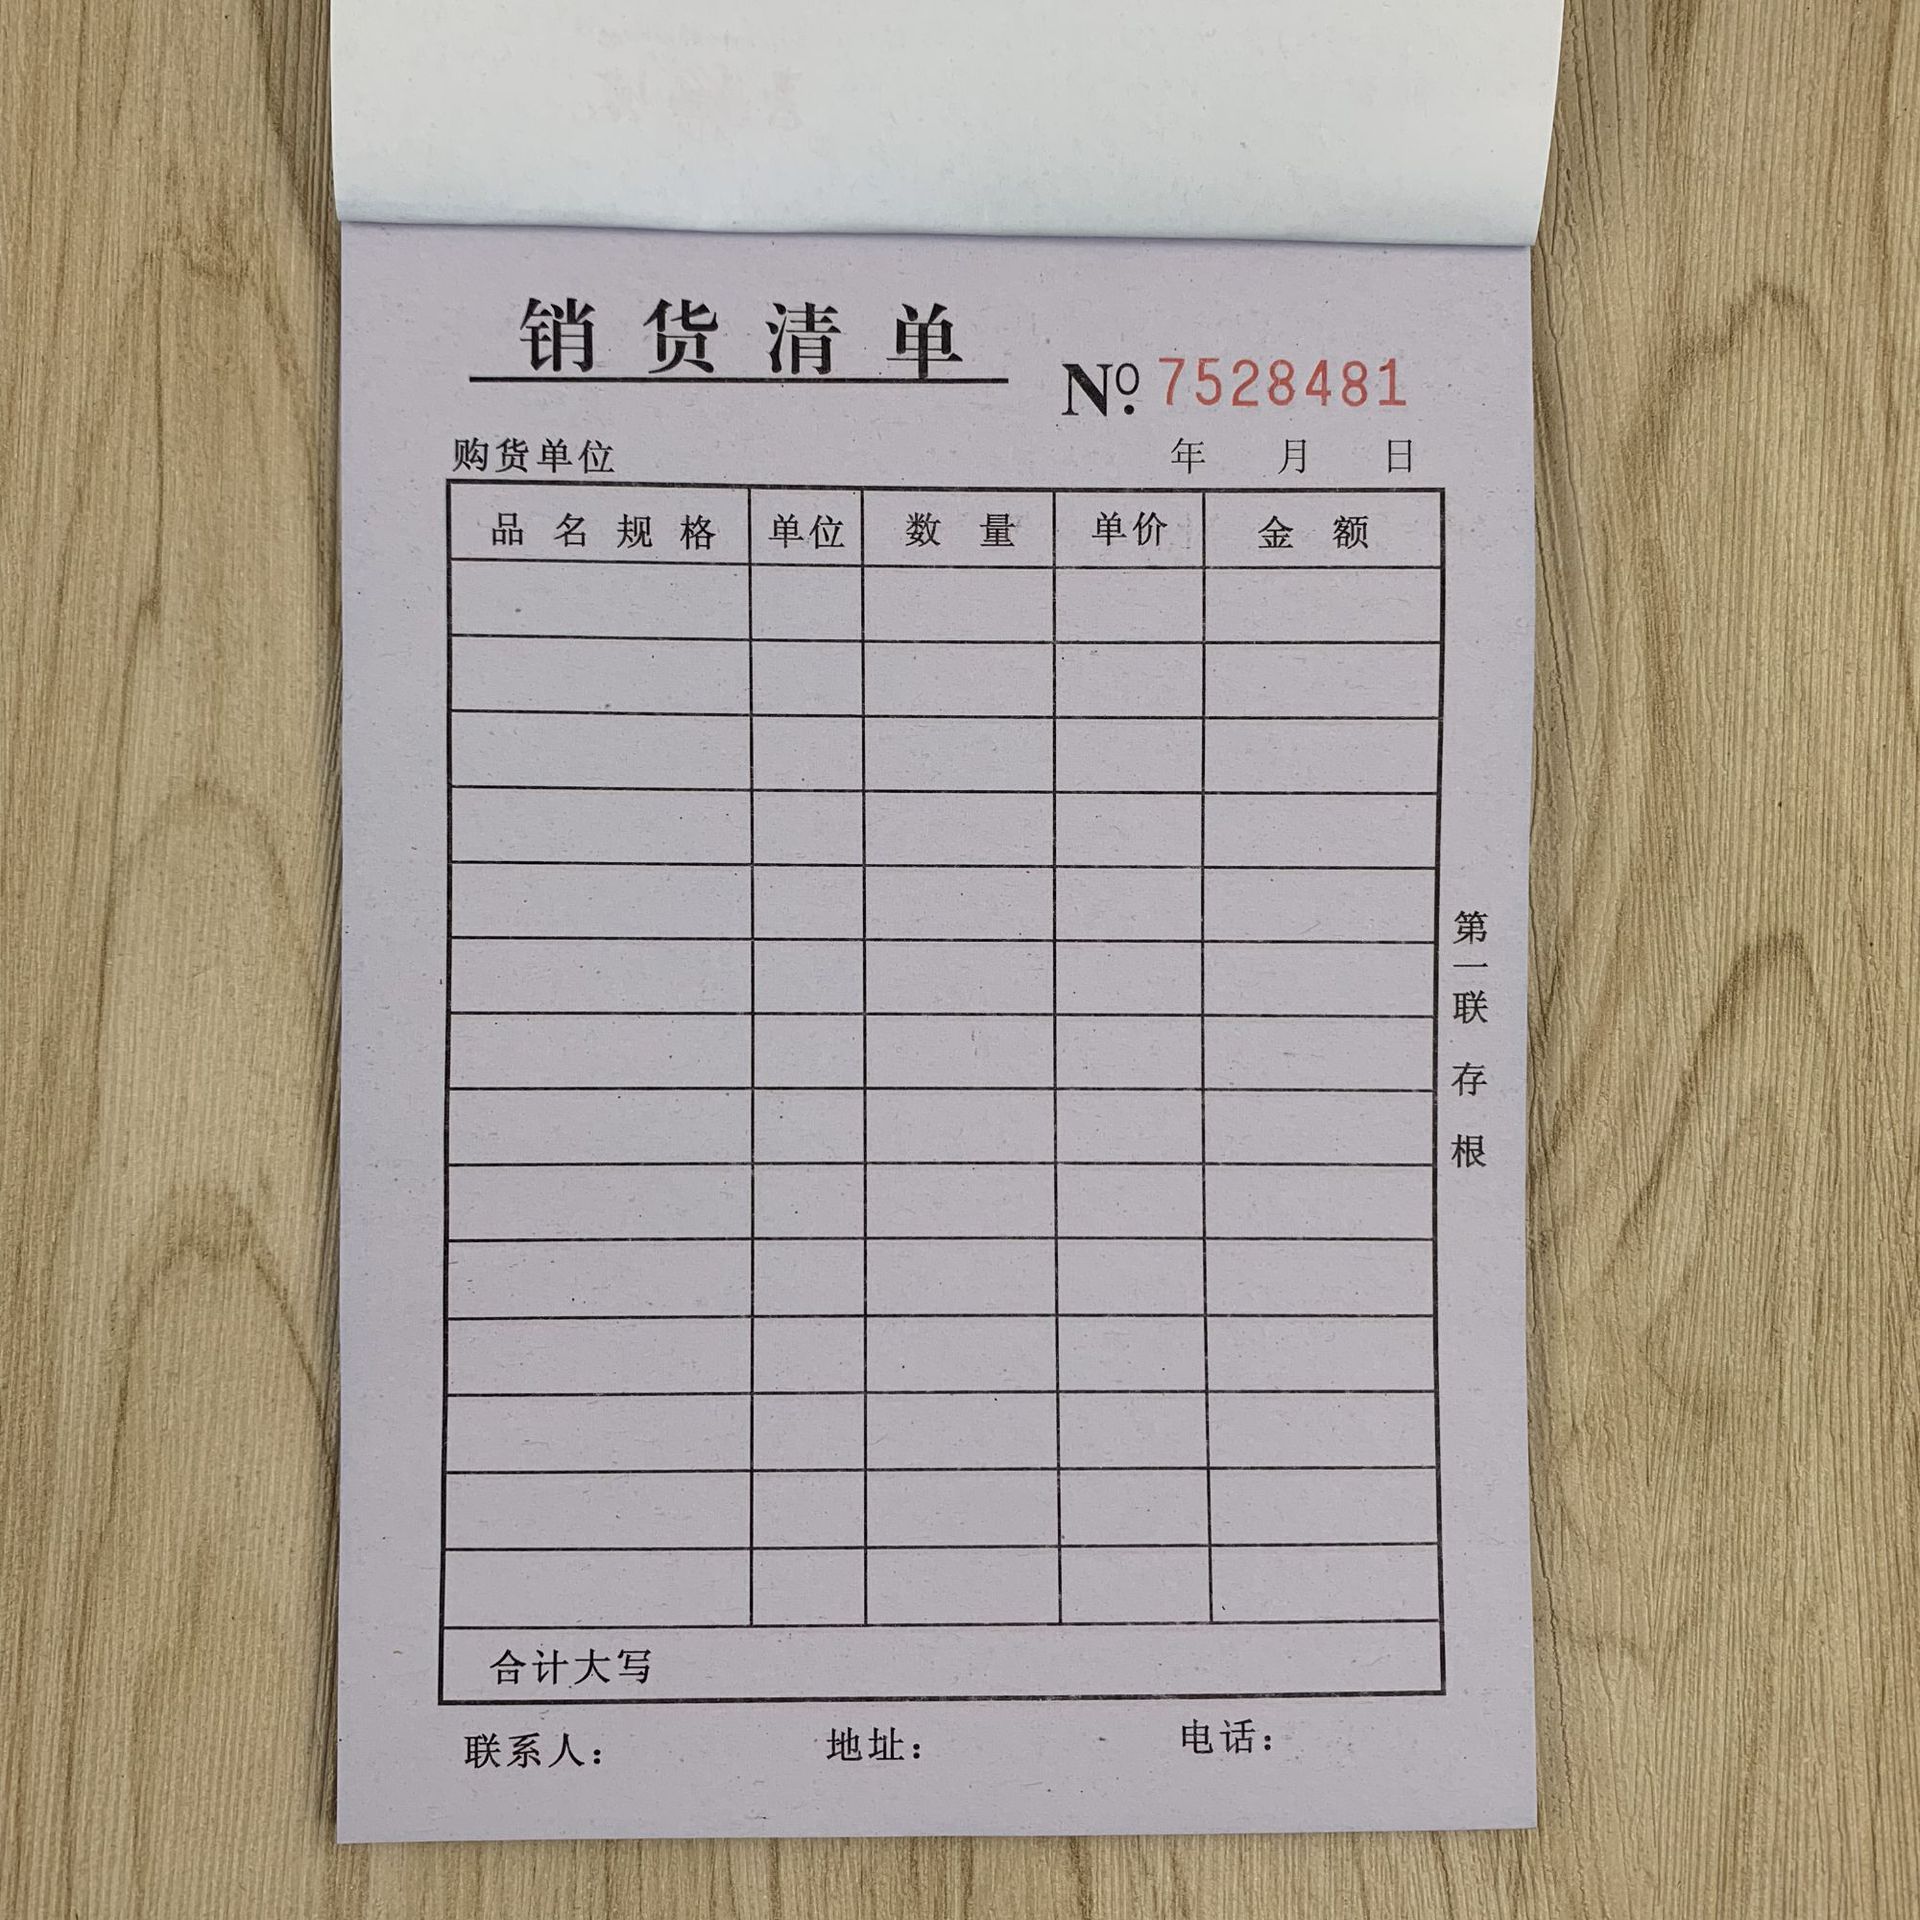 销货清单
No. 7528481
购货单位 年 月 日
品名规格 单位 数量 单价 金额
第一联 存根
合计大写
联系人： 地址： 电话：